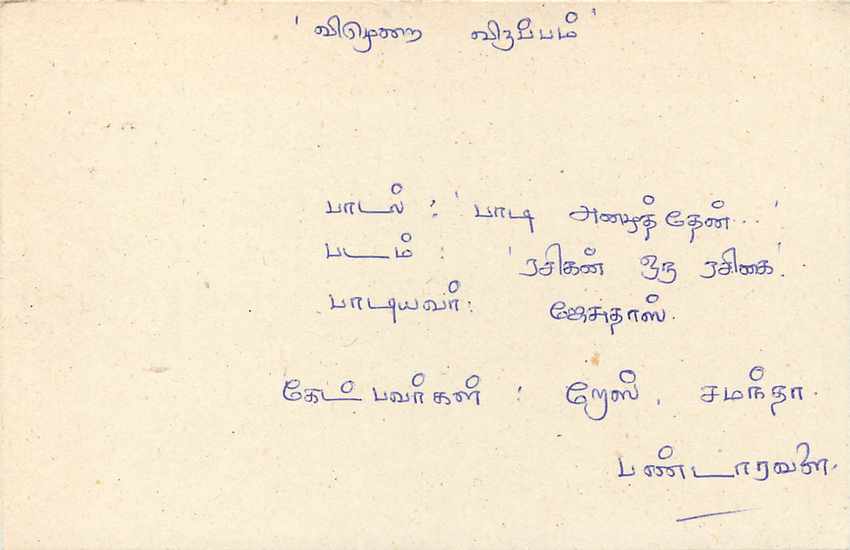 ' விடுமுறை விருப்பம் '
பாடல் : ' பாடி அழைத்தேன்...'
படம் : 'ரசிகன் ஒரு ரசிகை'.
பாடியவர் : ஜேசுதாஸ்.
கேட்பவர்கள் : றேஸ், சமந்தா.
பண்டாரவளை.